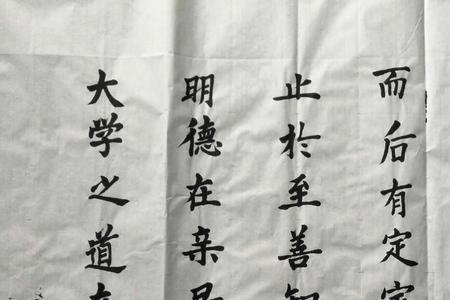 大学之道在
明德在亲民
止於至善知
而后有定定